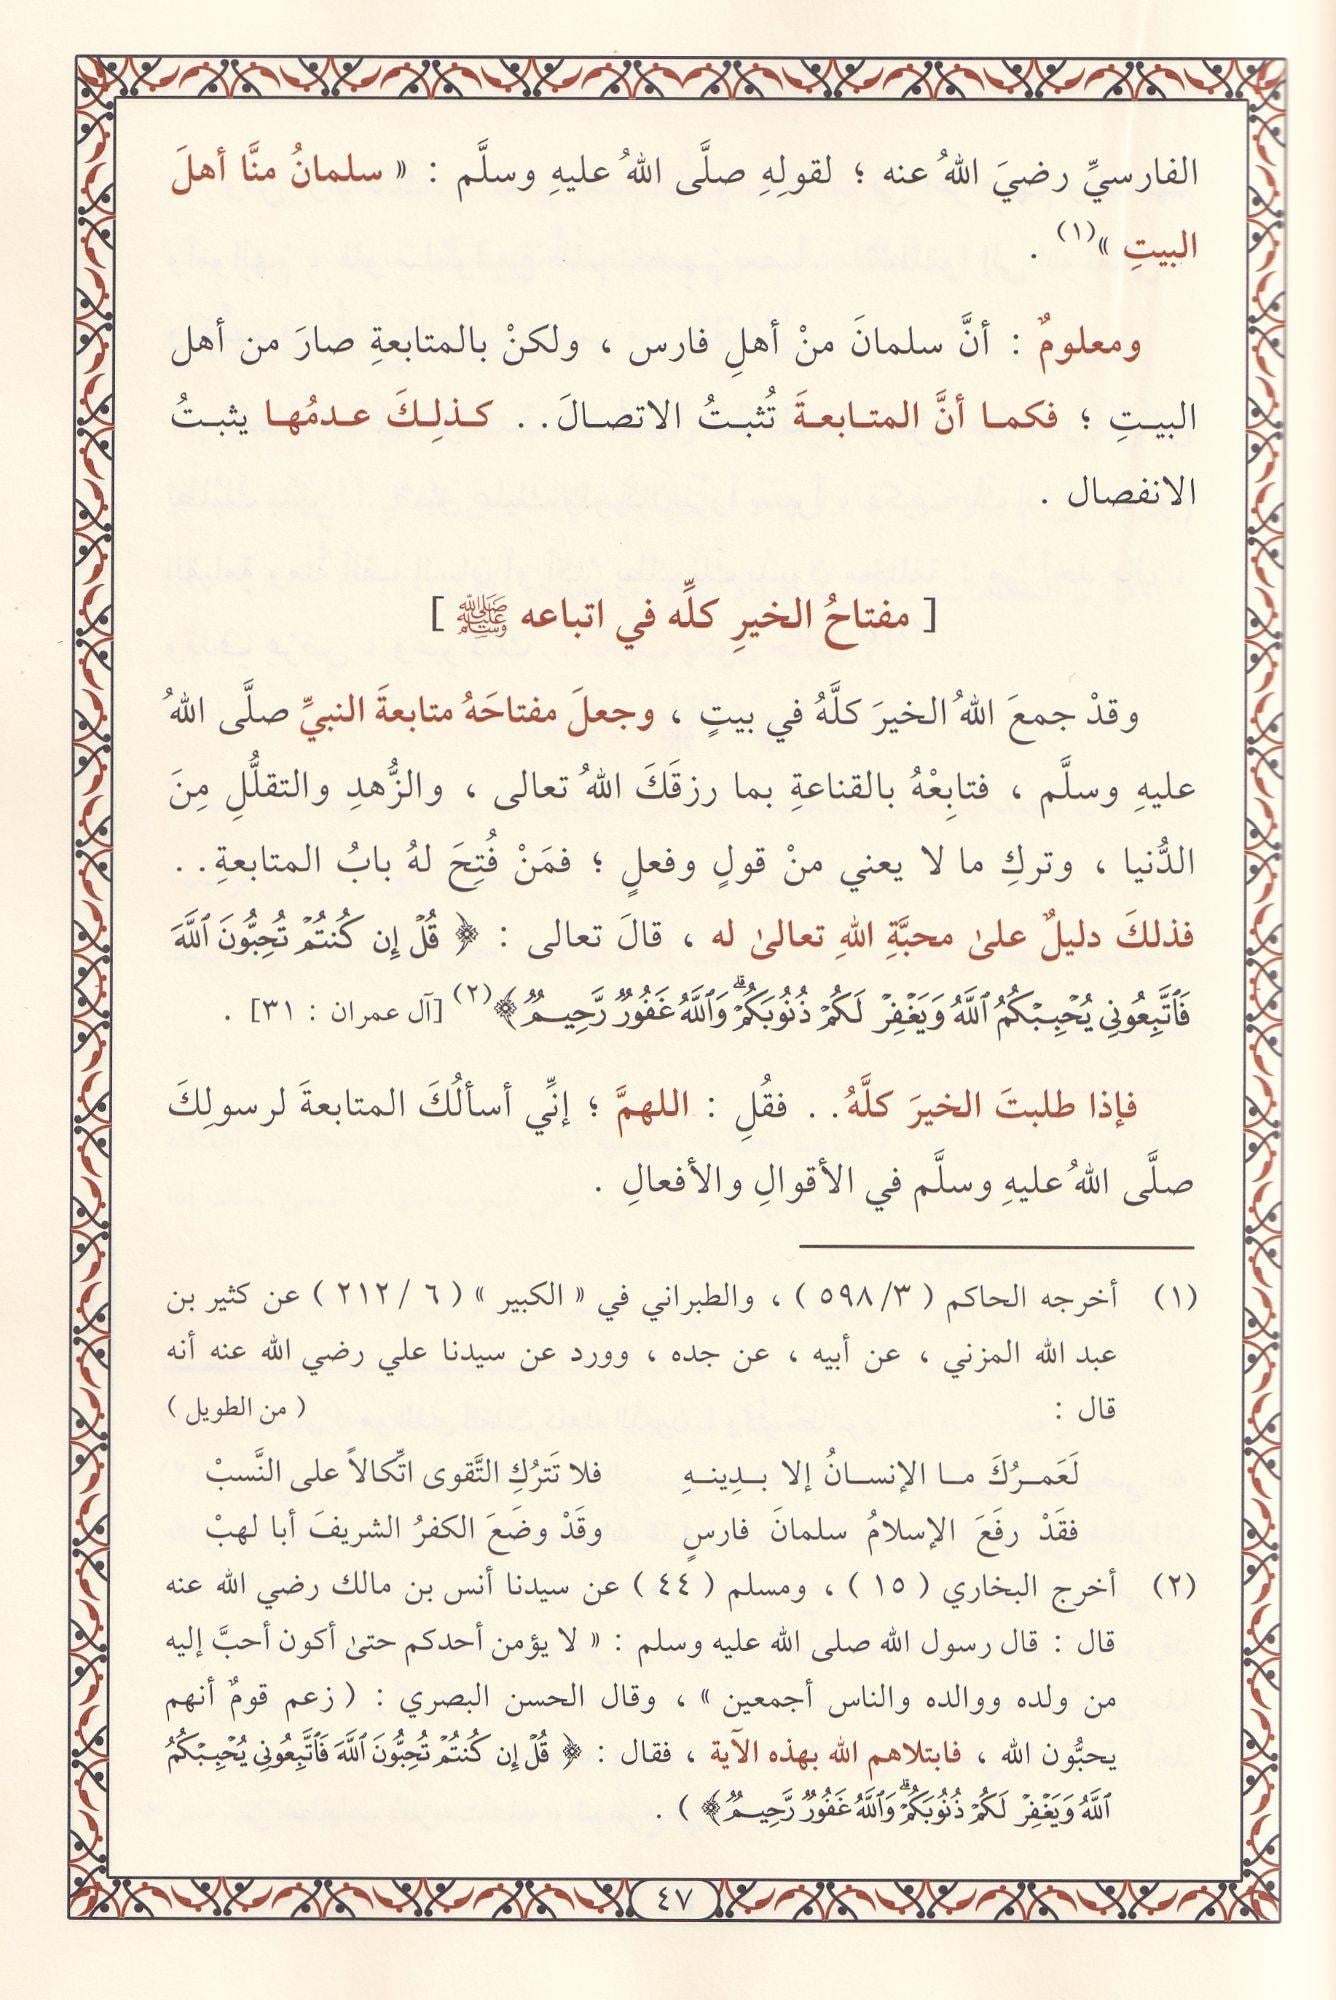 الفارسيِّ رضيَ اللهُ عنه ؛ لقولِهِ صلَّى اللهُ عليهِ وسلَّم : « سلمانُ منَّا أهلَ
البيتِ »(١) .
ومعلومٌ : أنَّ سلمانَ منْ أهلِ فارس ، ولكنْ بالمتابعةِ صارَ من أهل
البيـتِ ؛ فكمـا أنَّ المتـابعـةَ تُثبـتُ الاتصـالَ . . كـذلِـكَ عـدمُهـا يثبـتُ
الانفصال .
[ مفتاحُ الخيرِ كلِّه في اتباعه ﷺ ]
وقدْ جمعَ اللهُ الخيرَ كلَّهُ في بيتٍ ، وجعلَ مفتاحَهُ متابعةَ النبيِّ صلَّى اللهُ
عليهِ وسلَّم ، فتابِعْهُ بالقناعةِ بما رزقَكَ اللهُ تعالى ، والزُّهدِ والتقلُّلِ مِنَ
الدُّنيا ، وتركِ ما لا يعني منْ قولٍ وفعلٍ ؛ فمَنْ فُتِحَ لهُ بابُ المتابعةِ . .
فذلكَ دليلٌ علىٰ محبَّةِ اللهِ تعالىٰ له ، قالَ تعالى : ﴿ قُلْ إِن كُنتُمْ تُحِبُّونَ ٱللَّهَ
فَٱتَّبِعُونِي يُحْبِبْكُمُ ٱللَّهُ وَيَغْفِرْ لَكُمْ ذُنُوبَكُمْۗ وَٱللَّهُ غَفُورٌ رَّحِيـمٌ ﴾(٢) [آل عمران : ٣١] .
فإذا طلبتَ الخيرَ كلَّهُ . . فقُلِ : اللهمَّ ؛ إنِّي أسألُكَ المتابعةَ لرسولِكَ
صلَّى اللهُ عليهِ وسلَّم في الأقوالِ والأفعالِ .
(١) أخرجه الحاكم ( ٥٩٨/٣ ) ، والطبراني في « الكبير » ( ٦ / ٢١٢ ) عن كثير بن
عبد الله المزني ، عن أبيه ، عن جده ، وورد عن سيدنا علي رضي الله عنه أنه
قال : ( من الطويل )
لَعَمـرُكَ مـا الإنسـانُ إلا بـدِينـهِ فلا تَترُكِ التَّقوى اتِّكالاً على النَّسبْ
فقَدْ رفَعَ الإسلامُ سلمانَ فارسٍ وقَدْ وضَعَ الكفرُ الشريفَ أبا لهبْ
(٢) أخرج البخاري ( ١٥ ) ، ومسلم ( ٤٤ ) عن سيدنا أنس بن مالك رضي الله عنه
قال : قال رسول الله صلى الله عليه وسلم : « لا يؤمن أحدكم حتىٰ أكون أحبَّ إليه
من ولده ووالده والناس أجمعين » ، وقال الحسن البصري : ( زعم قومٌ أنهم
يحبُّون الله ، فابتلاهم الله بهذه الآية ، فقال : ﴿ قُلْ إِن كُنتُمْ تُحِبُّونَ ٱللَّهَ فَٱتَّبِعُونِي يُحْبِبْكُمُ
ٱللَّهُ وَيَغْفِرْ لَكُمْ ذُنُوبَكُمْۗ وَٱللَّهُ غَفُورٌ رَّحِيـمٌ ﴾ ) .
٤٧